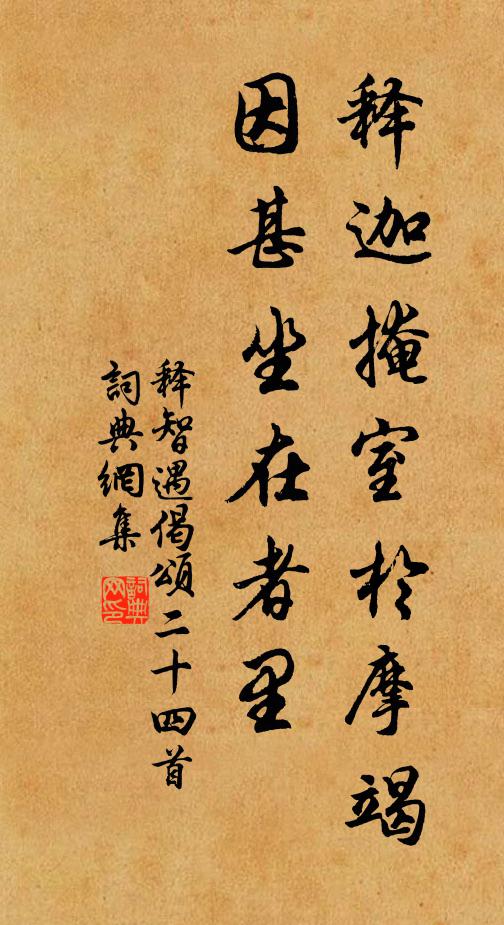 释迦掩室於摩竭
因甚坐在者里
释智遇偈頌二十四首
詞典網集
詞典网印